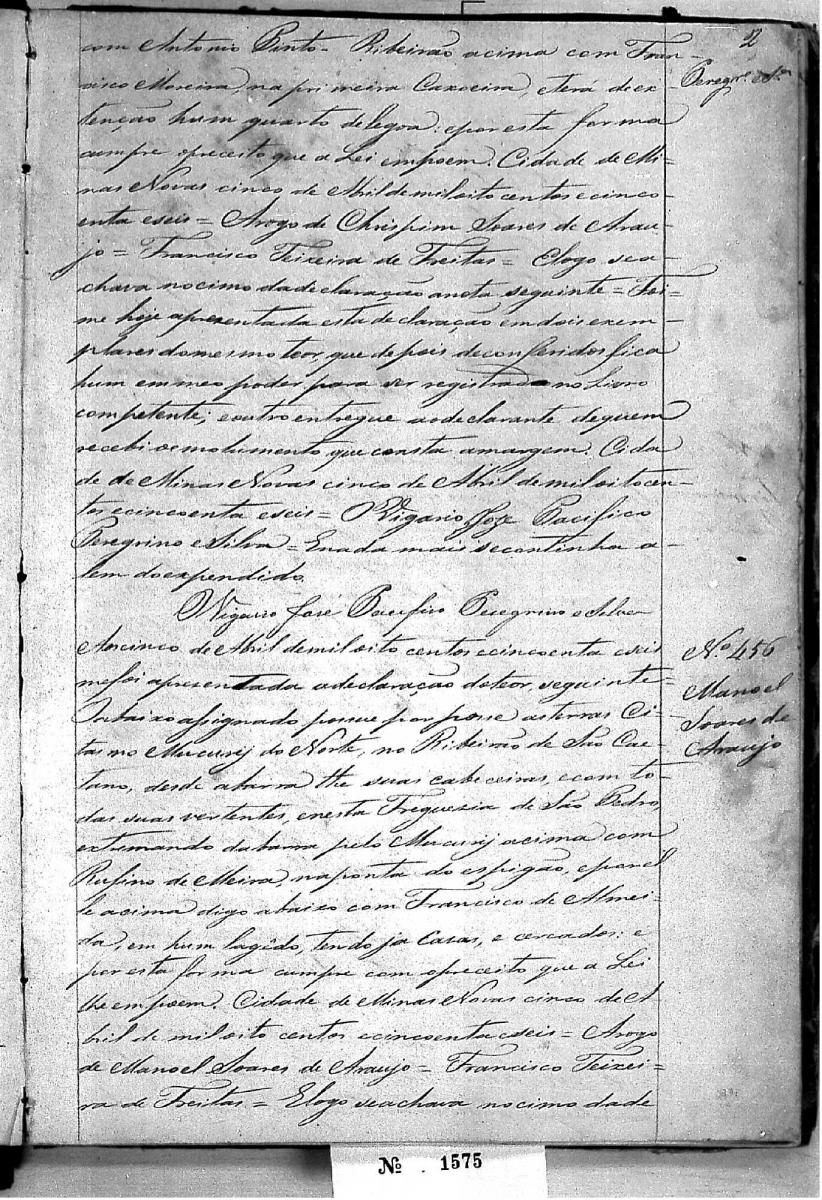 2
Peregr.º e S.ª
com Antonio Pinto = Ribeirão acima com Fran-
cisco Moreira, na primeira Caxoeira, eterá de ex
tenção hum quarto delegoa: eporesta forma
cumpre opreceito que a Lei empoem. Cidade de Mi-
nas Novas cinco de Abril demiloito centos ecinco-
enta eseis = Arogo de Chrispim Soares de Arau-
jo = Francisco Teixeira de Freitas = Elogo sea-
chava nocimo dadeclaração anota seguinte = Foi-
me hoje apresentada esta declaração emdois exem-
plares domesmo teor, que depois deconferidos fica
hum em meo poder para ser registrada no Livro
competente; eoutro entregue aodeclarante dequem
recebi oemolumento que consta amargem. Cida
de de Minas Novas cinco de Abril demiloitocen-
tos ecincoenta eseis = OVigario Joze Pacifico
Peregrino eSilva = Enada mais secontinha a-
lem doexpendido.
OVigario José Pacifico Peregrino eSilva
Aoscinco de Abril demiloito centos ecincoenta eseis
mefoi apresentada adeclaração doteor seguinte =
Oabaixo assignado possue por posse as terras Ci-
tas no Mucurij do Norte, no Ribeirão de São Cae-
tano, desde abarra the suas cabeceiras, ecom to-
das suas vertentes, enesta Freguezia de São Pedro,
extremando dabarra pelo Mucurij acima com
Rufino de Meira, naponta do espigão, eporel
le acima digo abaixo com Francisco de Almei-
da, em hum lagêdo, tendo ja Casas, e cercados: e
por esta forma cumpre com opreceito que a Lei
lhe empoem. Cidade de Minas Novas cinco de A-
bril de miloito centos ecincoenta eseis = Arogo
de Manoel Soares de Araujo = Francisco Teixei-
ra de Freitas = Elogo seachava nocimo dade
N.º 456
Manoel
Soares de
Araujo
Nº 1575